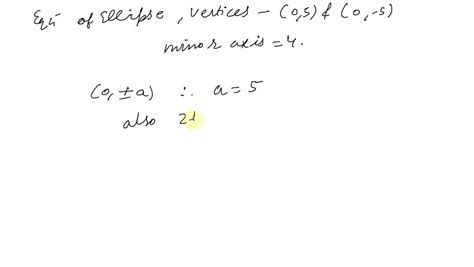 Eqn of Ellipse, vertices - (0,5) & (0,-5)
minor axis = 4.
(0, ±a) ∴ a = 5
also 2